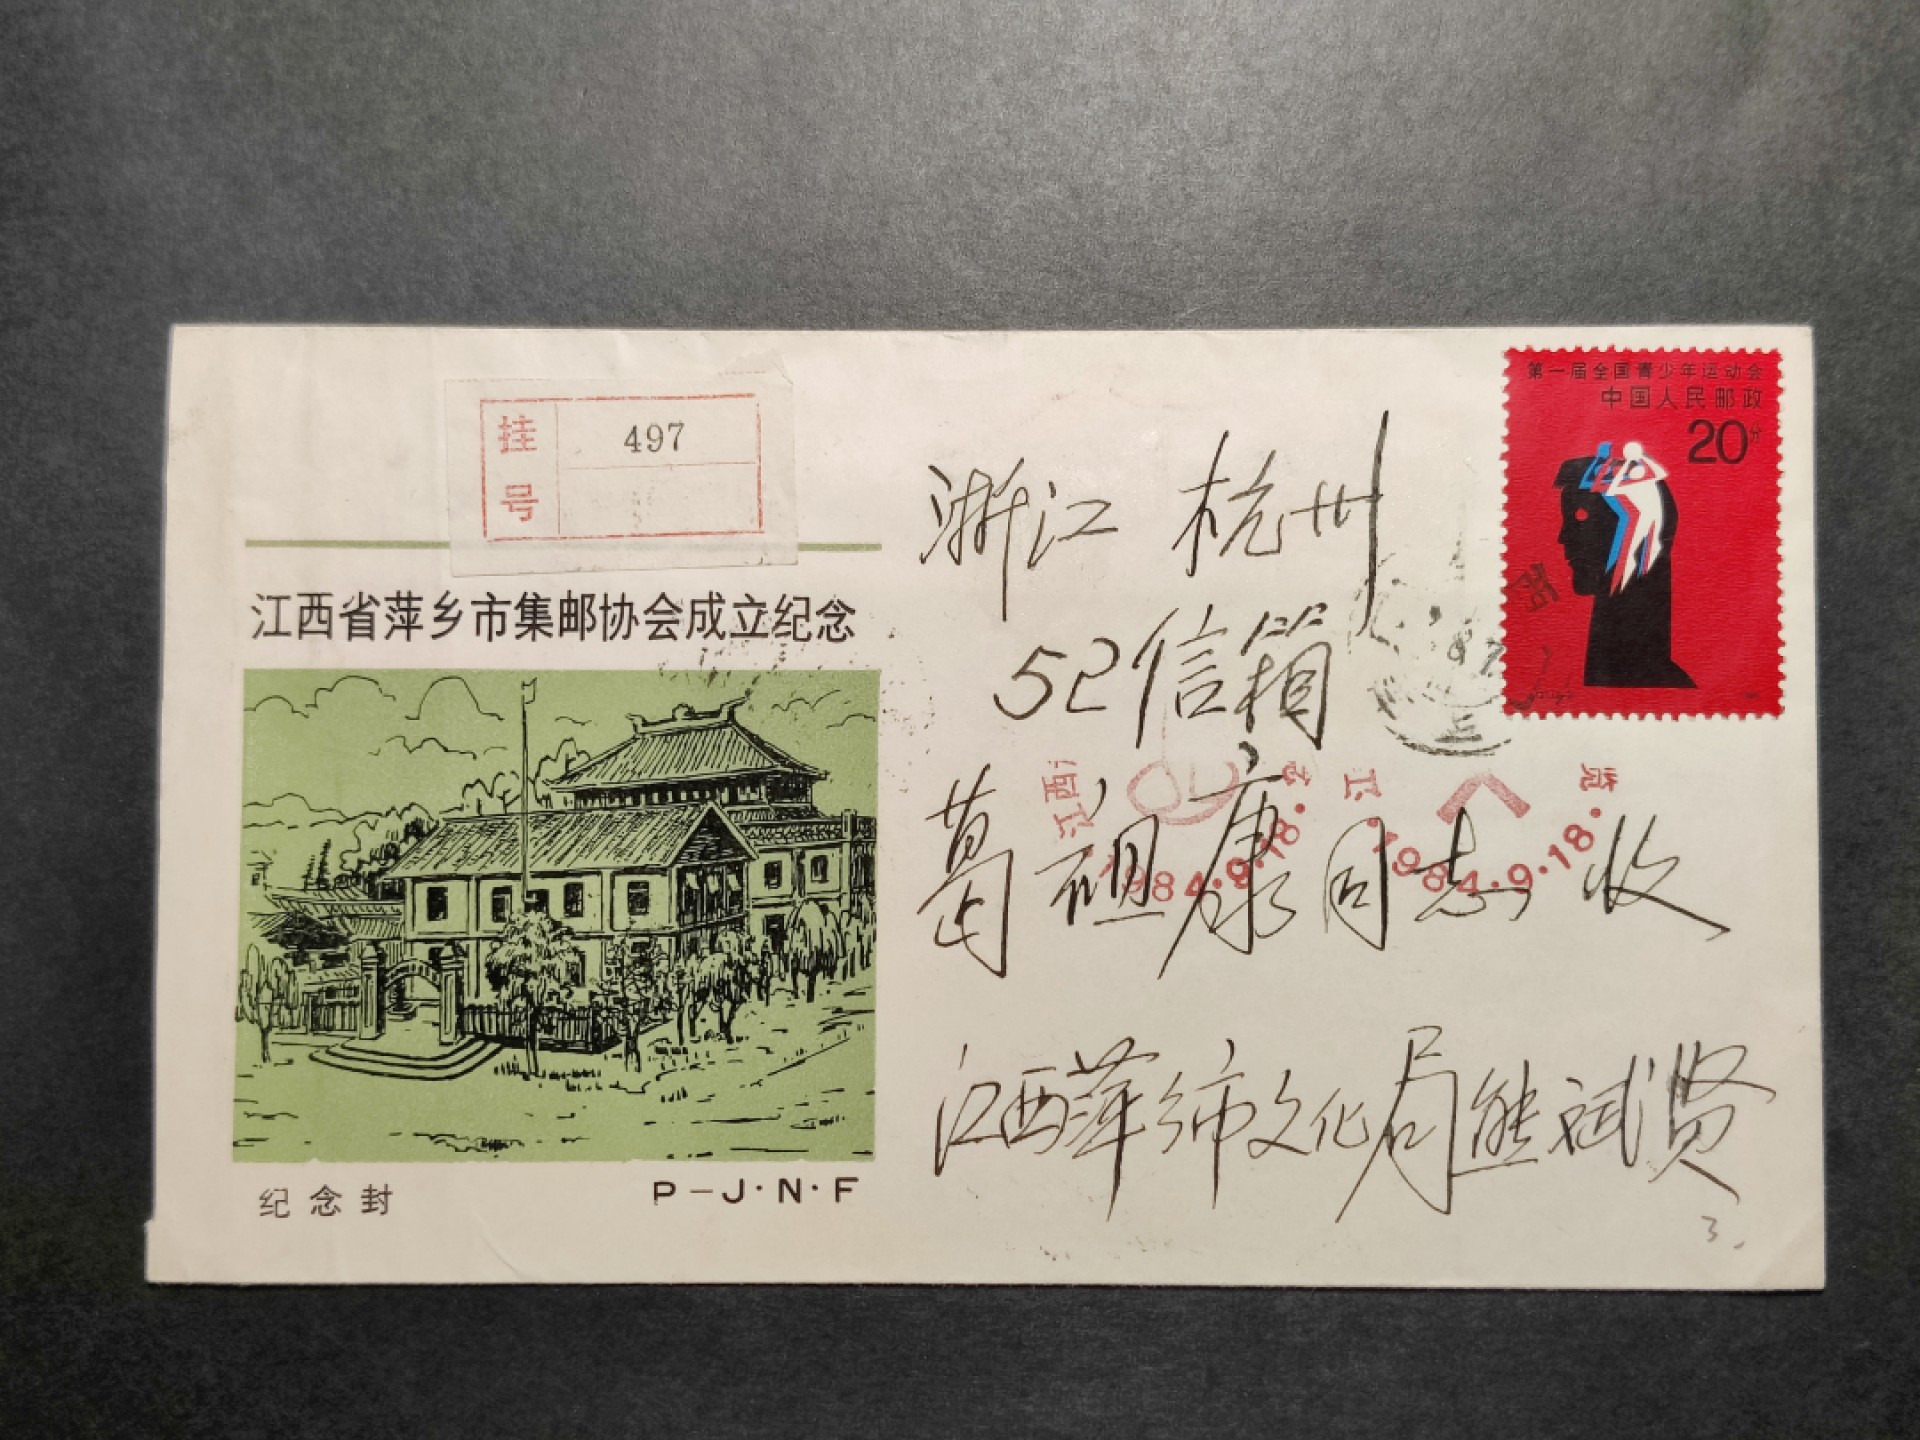 挂号
497
江西省萍乡市集邮协会成立纪念
纪念封
P－J·N·F
第一届全国青少年运动会
中国人民邮政
20分
浙江 杭州
52信箱
葛祖康同志 收
江西
1984.9.18.
江
览
1984.9.18.
西
江西萍乡市文化局熊斌贤
3.